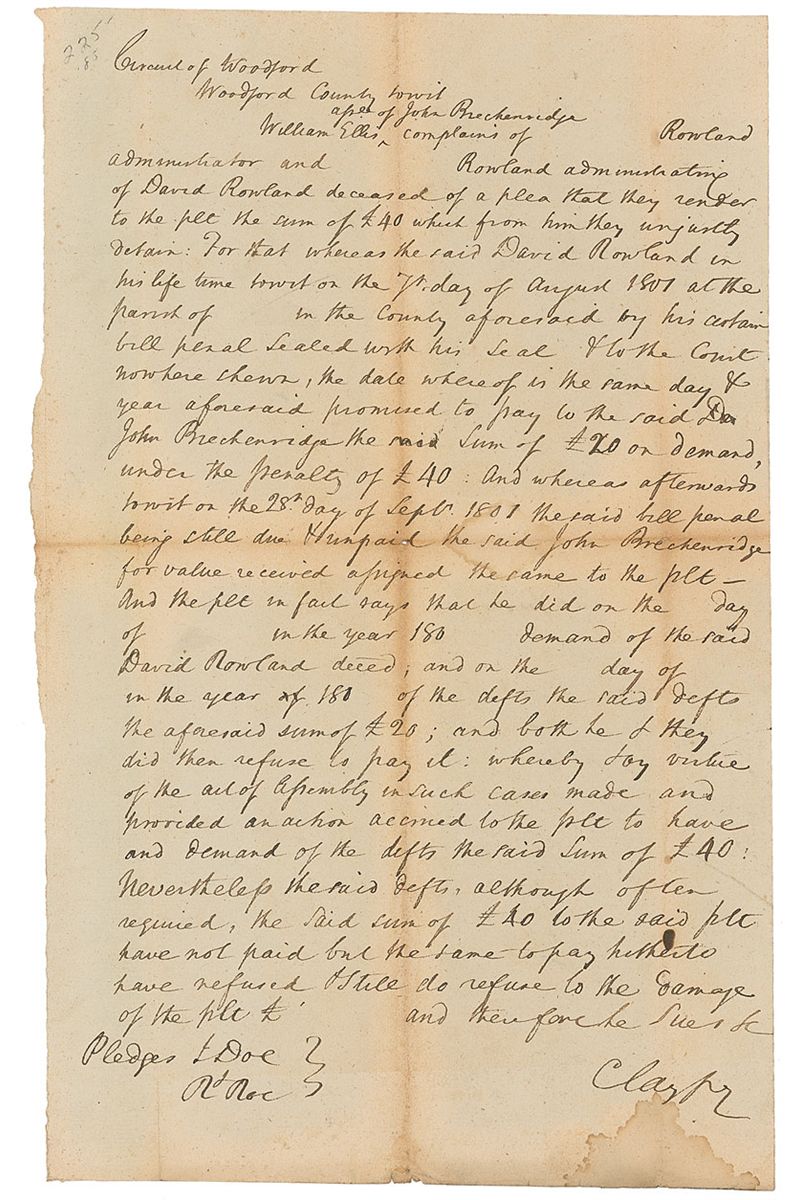 225
85
Circuit of Woodford
Woodford County towit
assee of John Breckenridge
William Ellis ^ complains of Rowland
administrator and Rowland administratrix
of David Rowland deceased of a plea that they render
to the plt the sum of £40 which from him they unjustly
detain: For that whereas the said David Rowland in
his life time towit on the 7th day of August 1801 at the
parish of in the County aforesaid by his certain
bill penal sealed with his seal & to the Court
nowhere shewn, the date whereof is the same day &
year aforesaid promised to pay to the said
John Breckenridge the said Sum of £20 on demand,
under the penalty of £40: And whereas afterwards
towit on the 28th day of Septr. 1801 the said bill penal
being still due & unpaid the said John Breckenridge
for value received assigned the same to the plt —
And the plt in fact says that he did on the day
of in the year 180 demand of the said
David Rowland deced; and on the day of
in the year of 180 of the defts the said defts
the aforesaid sum of £20; and both he & they
did then refuse to pay it: whereby & by virtue
of the act of Assembly in such cases made and
provided an action accrued to the plt to have
and demand of the defts the said Sum of £40:
Nevertheless the said defts, although often
required, the said sum of £40 to the said plt
have not paid but the same to pay hitherto
have refused & Still do refuse to the Damage
of the plt £ and therefore he Sues &c
Pledges J Doe }
Rd Roe }
Clay pq